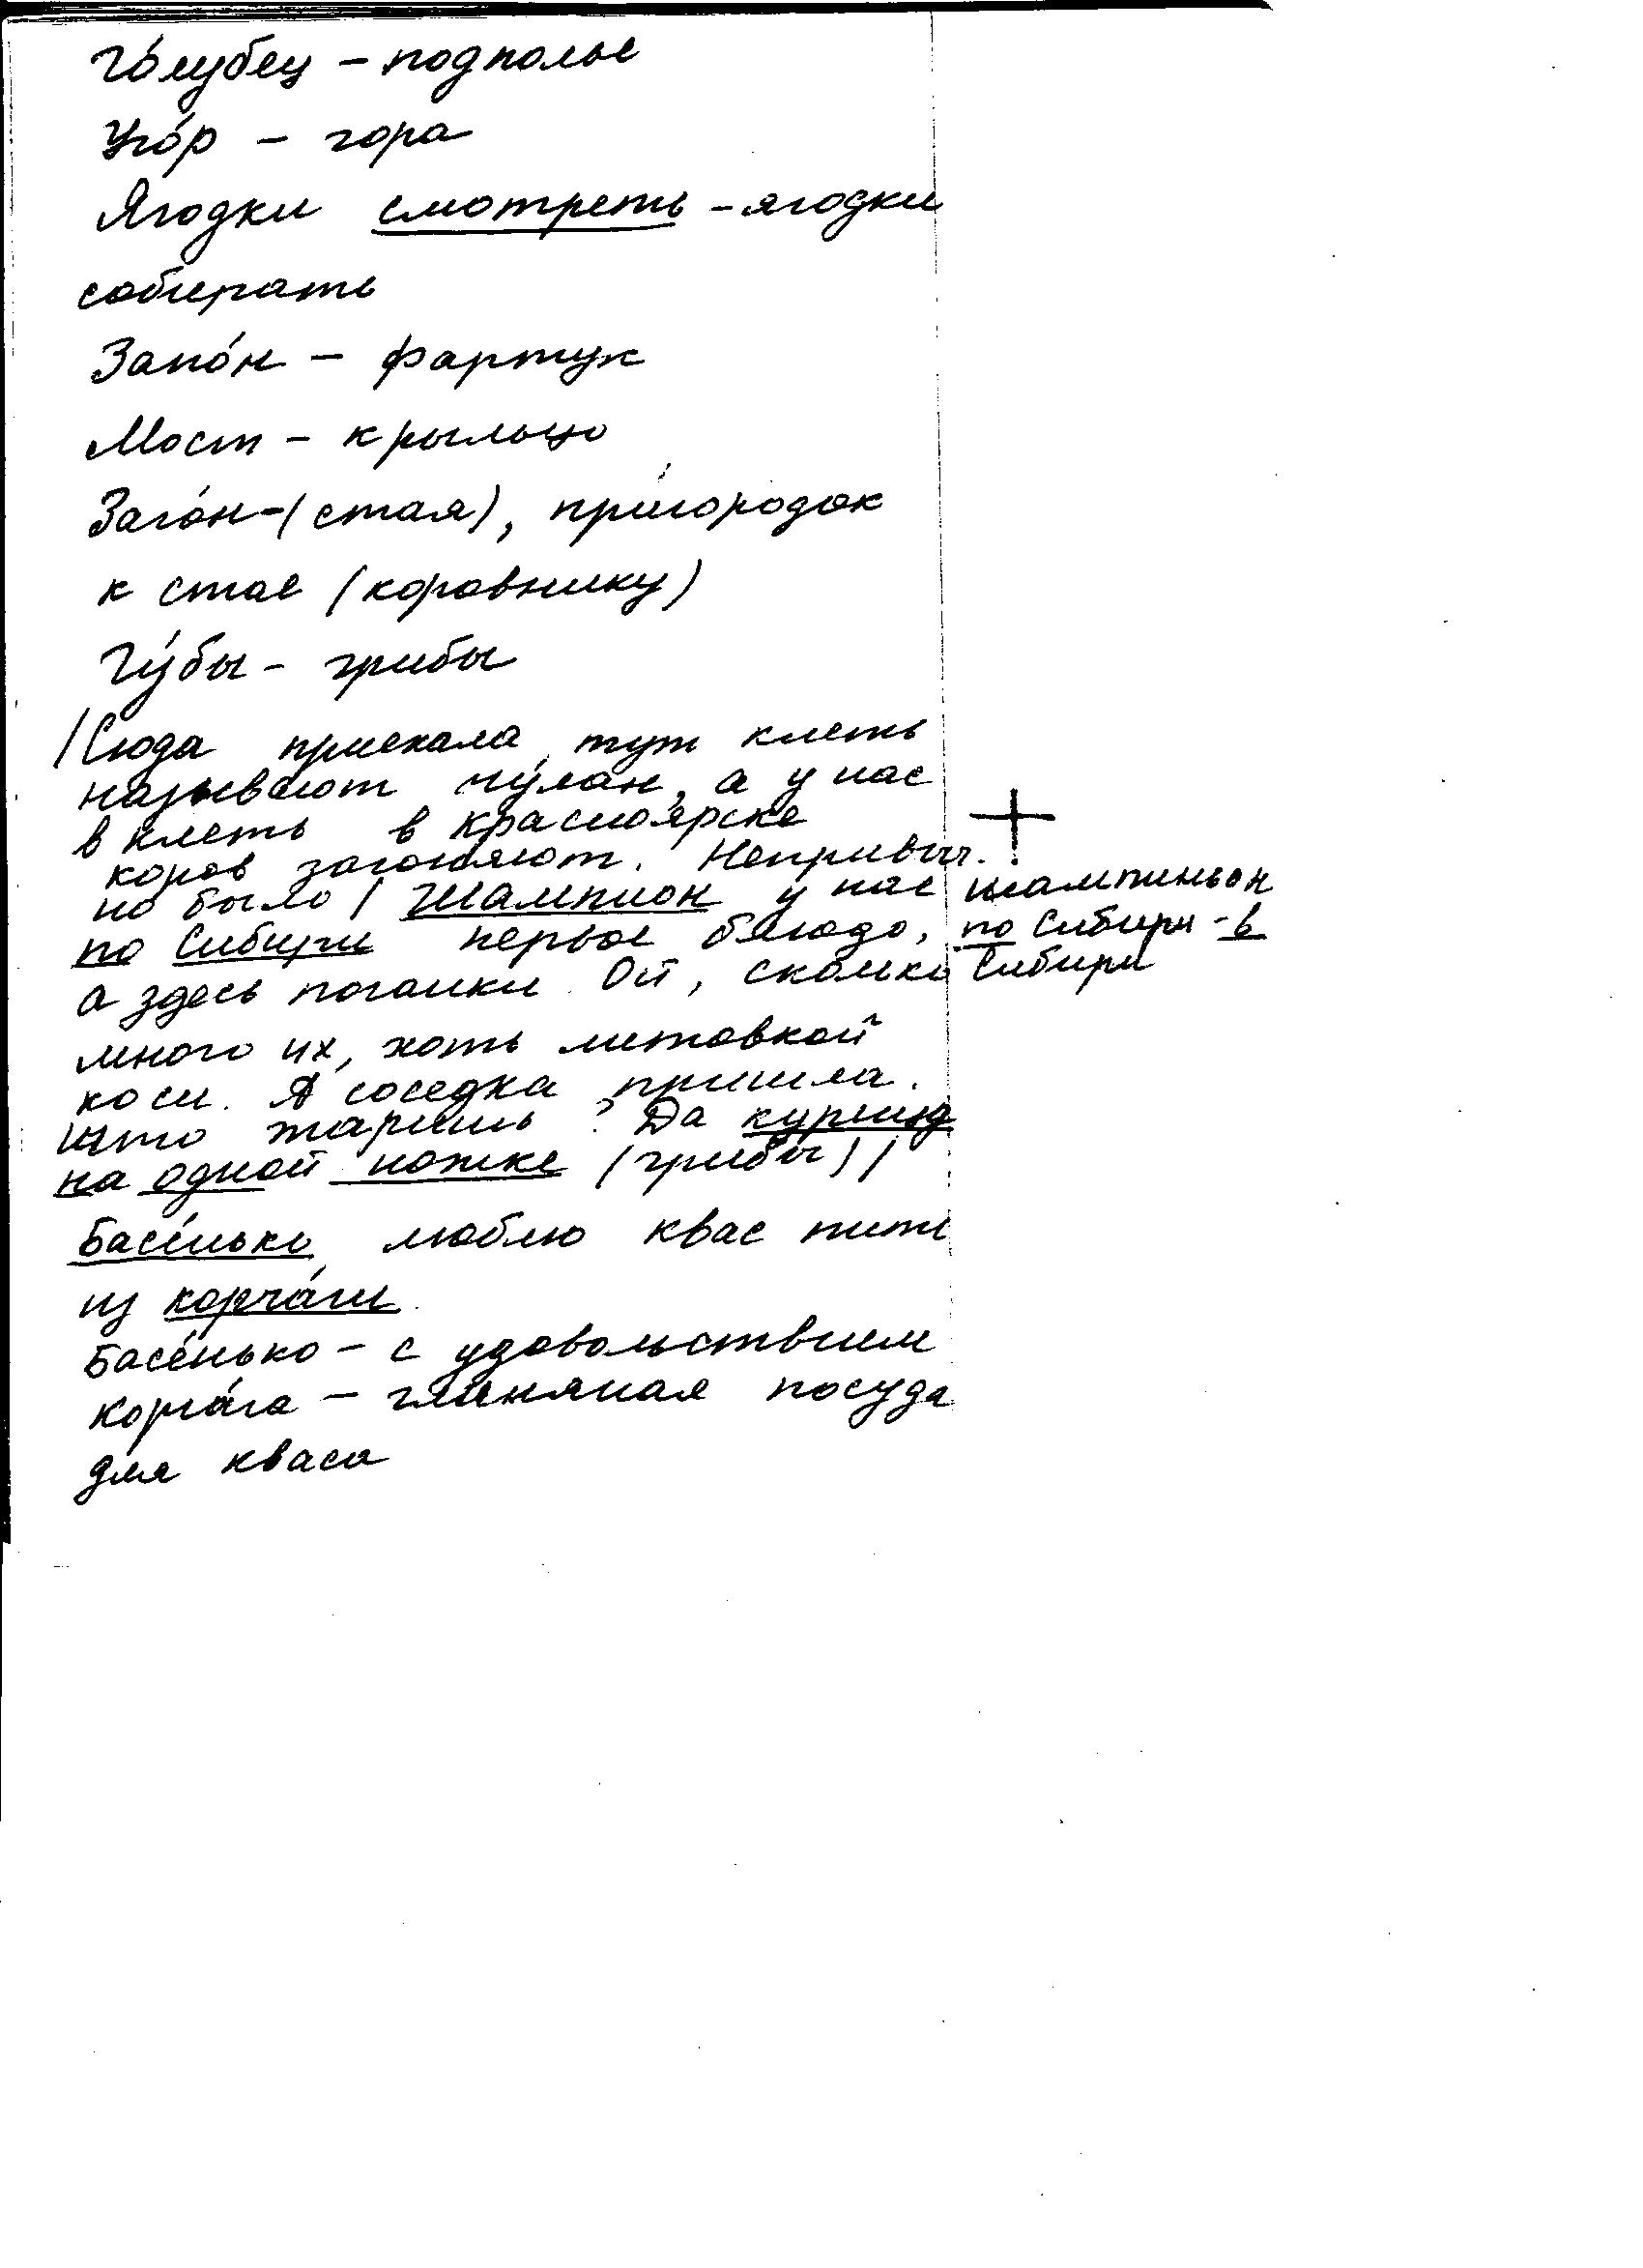 Го́лубец – подполье
Уго́р – гора
Ягодки смотреть – ягодки
собирать
Запо́н – фартук
Мост – крыльцо
Заго́н – (стая), при́городок
к стае (коровнику)
Гу́бы – грибы
/Сюда приехала, тут клеть
называют чу́лан, а у нас
в клеть в Красноярске
коров загоняют. Непривыч-
но было / Шампион у нас шампиньон
по Сибири первое блюдо, по Сибири - в
а здесь поганки. Ой, сколько Сибири
много их, хоть литовкой
коси. А соседка пришла.
Што жаришь? Да куриц
на одной ножке (грибы) /
Басе́нько люблю квас пить
из корча́ги.
Басе́нько – с удовольствием
корча́га – глиняная посуда
для кваса